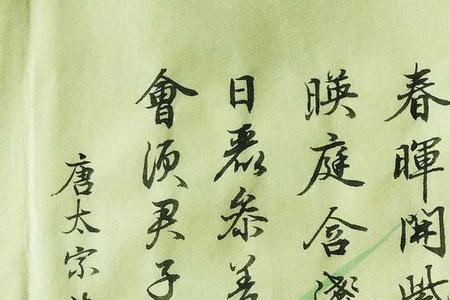 春暉開
暎庭含淺
日麗參差
會須君子
唐太宗